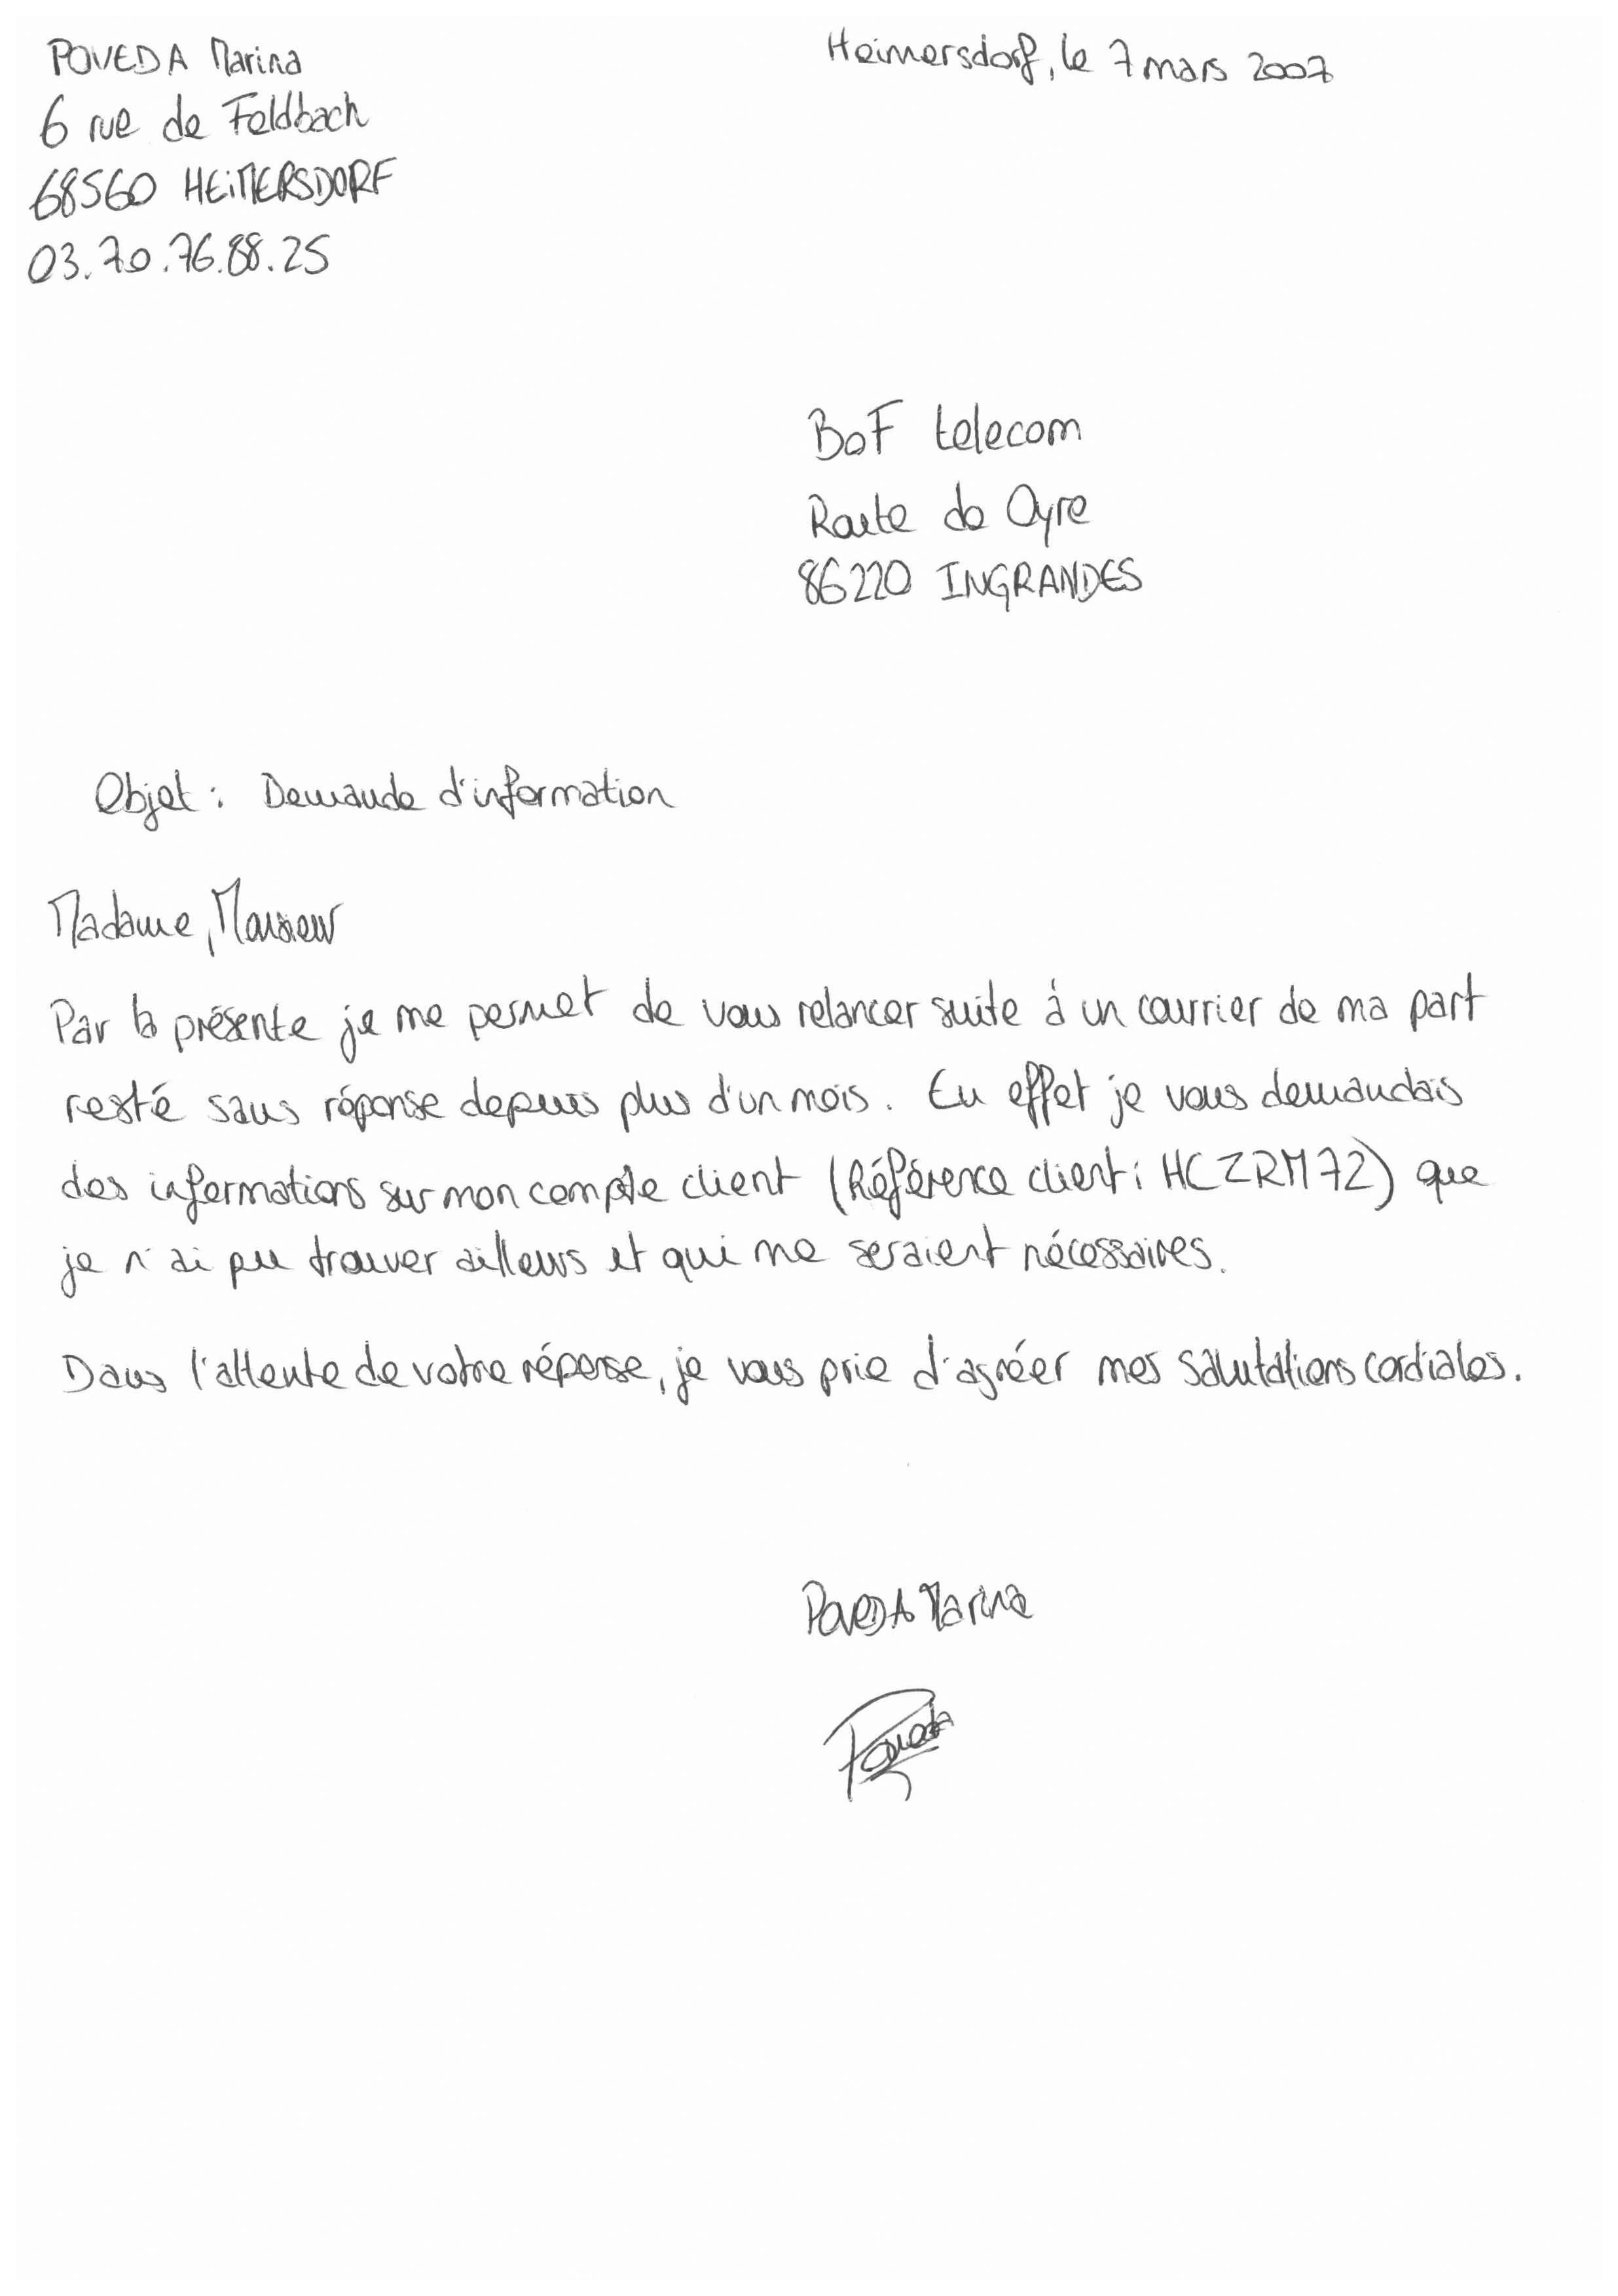 POVEDA Marina
6 rue de Feldbach
68560 HEIMERSDORF
03.70.76.88.25
Heimersdorf, le 7 mars 2007
BoF telecom
Route de Oyre
86220 INGRANDES
Objet : Demande d'information
Madame, Monsieur
Par la présente je me permet de vous relancer suite à un courrier de ma part
resté sans réponse depuis plus d'un mois. En effet je vous demandais
des informations sur mon compte client (Référence client : HCZRM72) que
je n'ai pu trouver ailleurs et qui me seraient nécessaires.
Dans l'attente de votre réponse, je vous prie d'agréer mes salutations cordiales.
POVEDA Marina
Poveda